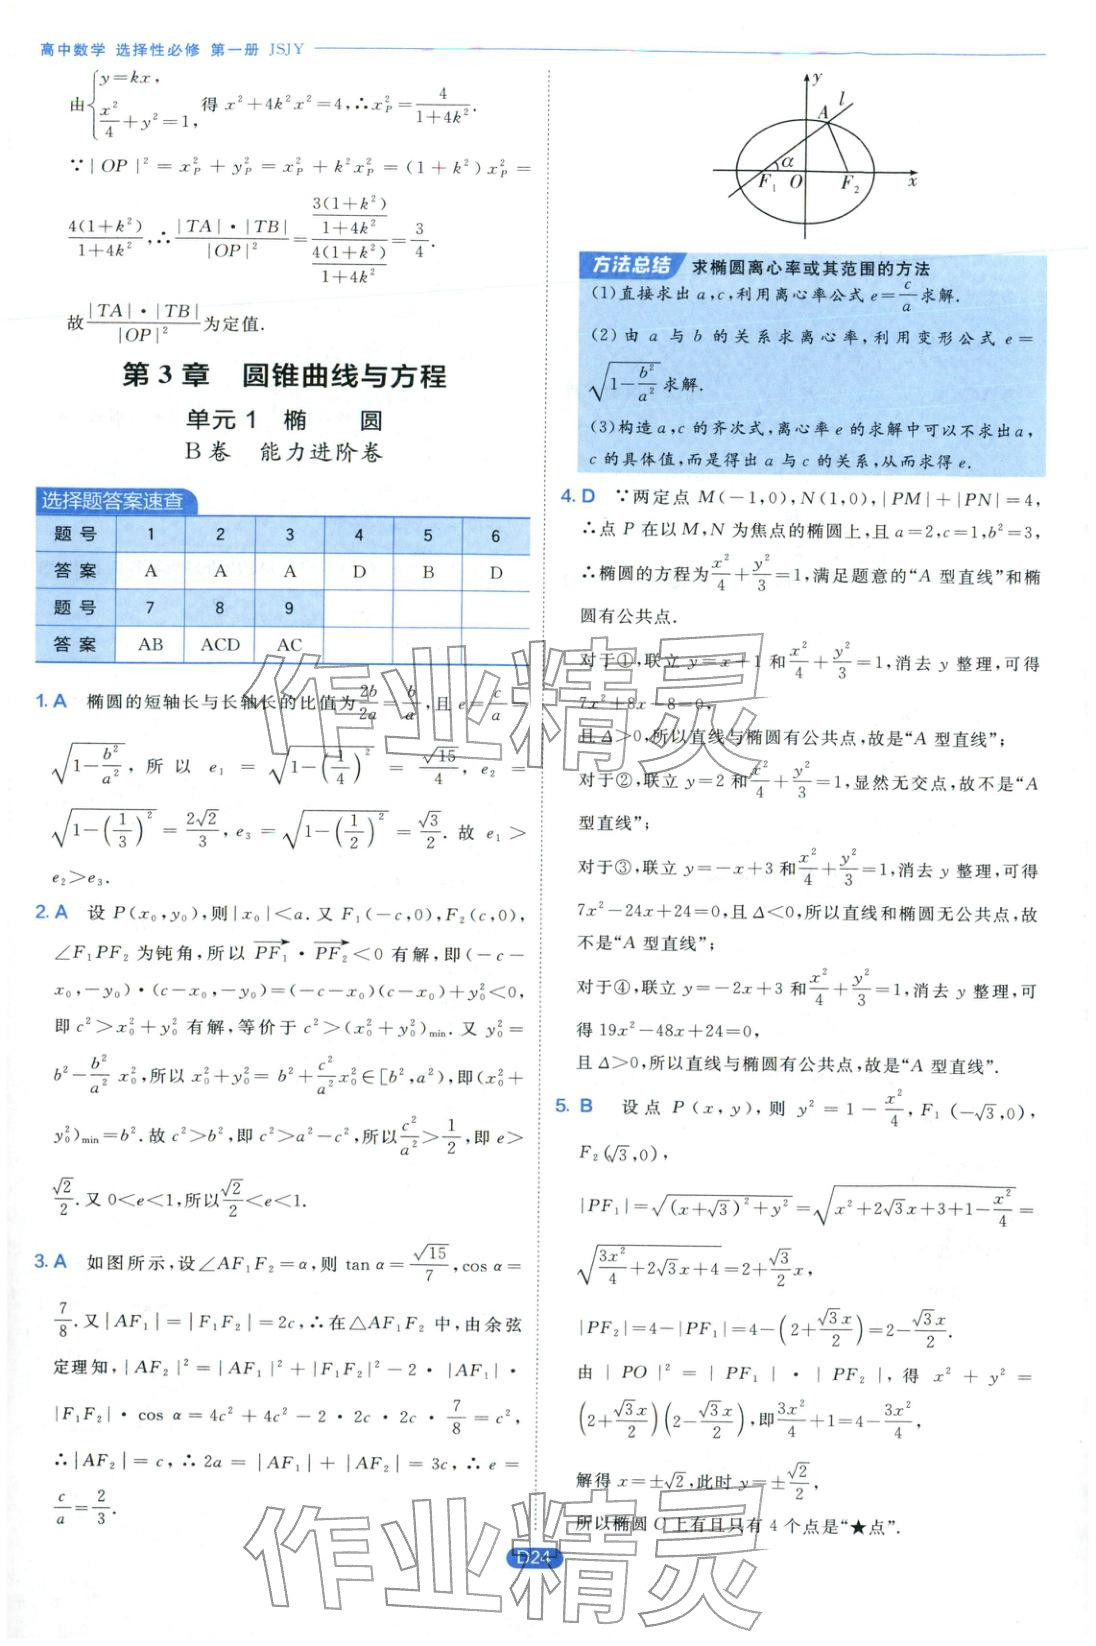 高中数学 选择性必修 第一册 JSJY
由{y=kx, x²/4+y²=1, 得x²+4k²x²=4,∴x_P²=4/(1+4k²).
∵|OP|²=x_P²+y_P²=x_P²+k²x_P²=(1+k²)x_P²=
4(1+k²)/(1+4k²),∴|TA|·|TB|/|OP|²=(3(1+k²)/(1+4k²))/(4(1+k²)/(1+4k²))=3/4.
故|TA|·|TB|/|OP|²为定值.
第3章 圆锥曲线与方程
单元1 椭 圆
B卷 能力进阶卷
选择题答案速查
题号 1 2 3 4 5 6
答案 A A A D B D
题号 7 8 9
答案 AB ACD AC
1. A 椭圆的短轴长与长轴长的比值为2b/2a=b/a,且e=c/a=
√(1-b²/a²),所以e₁=√(1-(1/4)²)=√15/4,e₂=
√(1-(1/3)²)=2√2/3,e₃=√(1-(1/2)²)=√3/2.故e₁>
e₂>e₃.
2. A 设P(x₀,y₀),则|x₀|<a.又F₁(-c,0),F₂(c,0),
∠F₁PF₂为钝角,所以PF₁→·PF₂→<0有解,即(-c-
x₀,-y₀)·(c-x₀,-y₀)=(-c-x₀)(c-x₀)+y₀²<0,
即c²>x₀²+y₀²有解,等价于c²>(x₀²+y₀²)min.又y₀²=
b²-b²/a² x₀²,所以x₀²+y₀²=b²+c²/a² x₀²∈[b²,a²),即(x₀²+
y₀²)min=b².故c²>b²,即c²>a²-c²,所以c²/a²>1/2,即e>
√2/2.又0<e<1,所以√2/2<e<1.
3. A 如图所示,设∠AF₁F₂=α,则tan α=√15/7,cos α=
7/8.又|AF₁|=|F₁F₂|=2c,∴在△AF₁F₂中,由余弦
定理知,|AF₂|²=|AF₁|²+|F₁F₂|²-2·|AF₁|·
|F₁F₂|·cos α=4c²+4c²-2·2c·2c·7/8=c²,
∴|AF₂|=c,∴2a=|AF₁|+|AF₂|=3c,∴e=
c/a=2/3.
y
A l
α
F₁ O F₂ x
方法总结 求椭圆离心率或其范围的方法
(1)直接求出a,c,利用离心率公式e=c/a求解.
(2)由a与b的关系求离心率,利用变形公式e=
√(1-b²/a²)求解.
(3)构造a,c的齐次式,离心率e的求解中可以不求出a,
c的具体值,而是得出a与c的关系,从而求得e.
4. D ∵两定点M(-1,0),N(1,0),|PM|+|PN|=4,
∴点P在以M,N为焦点的椭圆上,且a=2,c=1,b²=3,
∴椭圆的方程为x²/4+y²/3=1,满足题意的“A型直线”和椭
圆有公共点.
对于①,联立y=x+1和x²/4+y²/3=1,消去y整理,可得
7x²+8x-8=0,
且Δ>0,所以直线与椭圆有公共点,故是“A型直线”;
对于②,联立y=2和x²/4+y²/3=1,显然无交点,故不是“A
型直线”;
对于③,联立y=-x+3和x²/4+y²/3=1,消去y整理,可得
7x²-24x+24=0,且Δ<0,所以直线和椭圆无公共点,故
不是“A型直线”;
对于④,联立y=-2x+3和x²/4+y²/3=1,消去y整理,可
得19x²-48x+24=0,
且Δ>0,所以直线与椭圆有公共点,故是“A型直线”.
5. B 设点P(x,y),则y²=1-x²/4,F₁(-√3,0),
F₂(√3,0),
|PF₁|=√((x+√3)²+y²)=√(x²+2√3x+3+1-x²/4)=
√(3x²/4+2√3x+4)=2+√3/2 x,
|PF₂|=4-|PF₁|=4-(2+√3x/2)=2-√3x/2.
由|PO|²=|PF₁|·|PF₂|,得x²+y²=
(2+√3x/2)(2-√3x/2),即3x²/4+1=4-3x²/4,
解得x=±√2,此时y=±√2/2,
所以椭圆C上有且只有4个点是“★点”.
D24
作业精灵
作业精灵